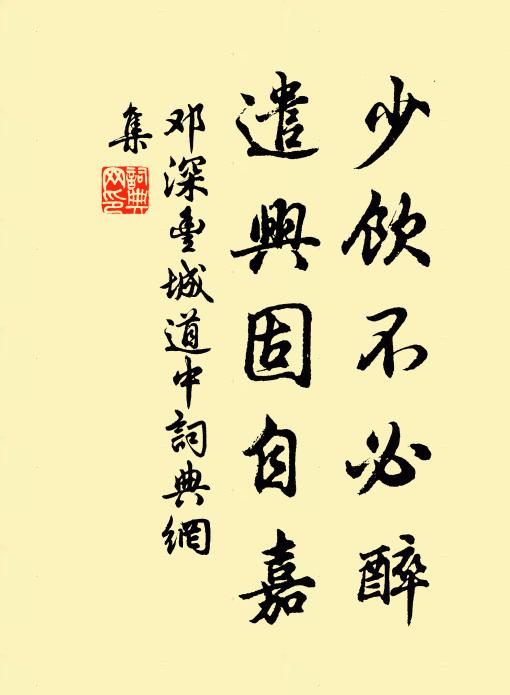 少飲不必醉
遣興固自嘉
邓深豐城道中詞典網
集
詞典
网印